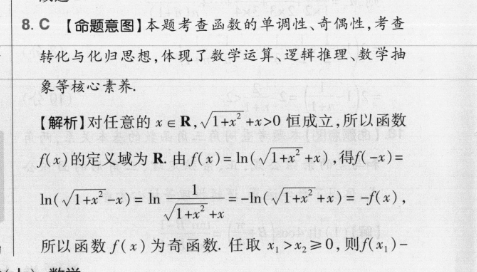 8. C 【命题意图】本题考查函数的单调性、奇偶性,考查
转化与化归思想,体现了数学运算、逻辑推理、数学抽
象等核心素养.
【解析】对任意的 x∈R,√(1+x²)+x>0 恒成立,所以函数
f(x)的定义域为 R. 由 f(x)=ln(√(1+x²)+x),得f(-x)=
ln(√(1+x²)-x)=ln 1/(√(1+x²)+x)=-ln(√(1+x²)+x)=-f(x),
所以函数 f(x)为奇函数. 任取 x₁>x₂≥0,则f(x₁)-